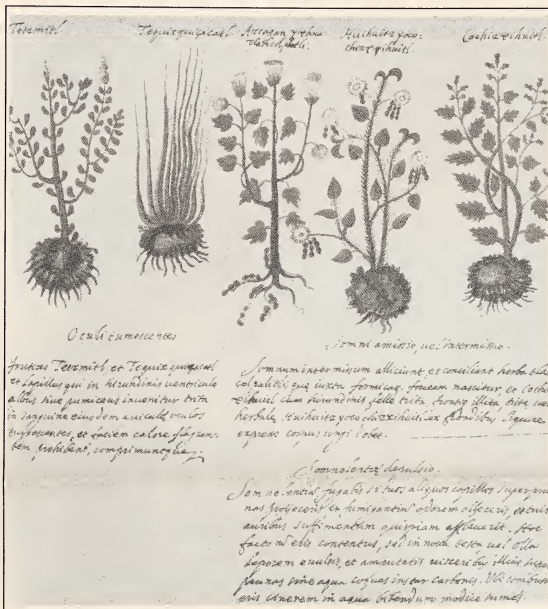 Tetzmitl Tequixquiçacatl Azcapan yxhua Huihuitzyoco- Cochizxihuitl.
tlatlacolpatli. chizxihuitl.
Oculi tumescentes
frutices Tetzmitl, et Tequixquiçacatl
et lapillus qui in hirundinis ventriculo
albus sive puniceus invenitur trita
in sanguine eiusdem aviculæ, oculos
turgescentes, et faciem calore flagran-
tem prohibent, comprimuntque.
Somni amissio, vel intermissio.
Somnum intermissum alliciunt, et conciliant herba
quæ iuxta formicæ foveam nascitur, et Cochiz-
xihuitl cum hirundinis felle trita, fronti illita
herbulæ Huihuitzyocochizxihuitl ex frondibus liquore
expresso corpus ungi debet.
Somnolentiæ depulsio.
Somnolentiam fugabis si tuos aliquos capillos super pru-
nas projeceris et fumigantium odorem olfeceris, et tuis
auribus suffimentum quispiam afflaverit. Hoc
facto ne eris contentus, sed in nova testa vel olla
leporem evulsis, et amputatis visceribus illius super
prunas sine aqua coquas instar carbonis. Ubi combus-
eris cinerem in aqua bibendum modice sumes.